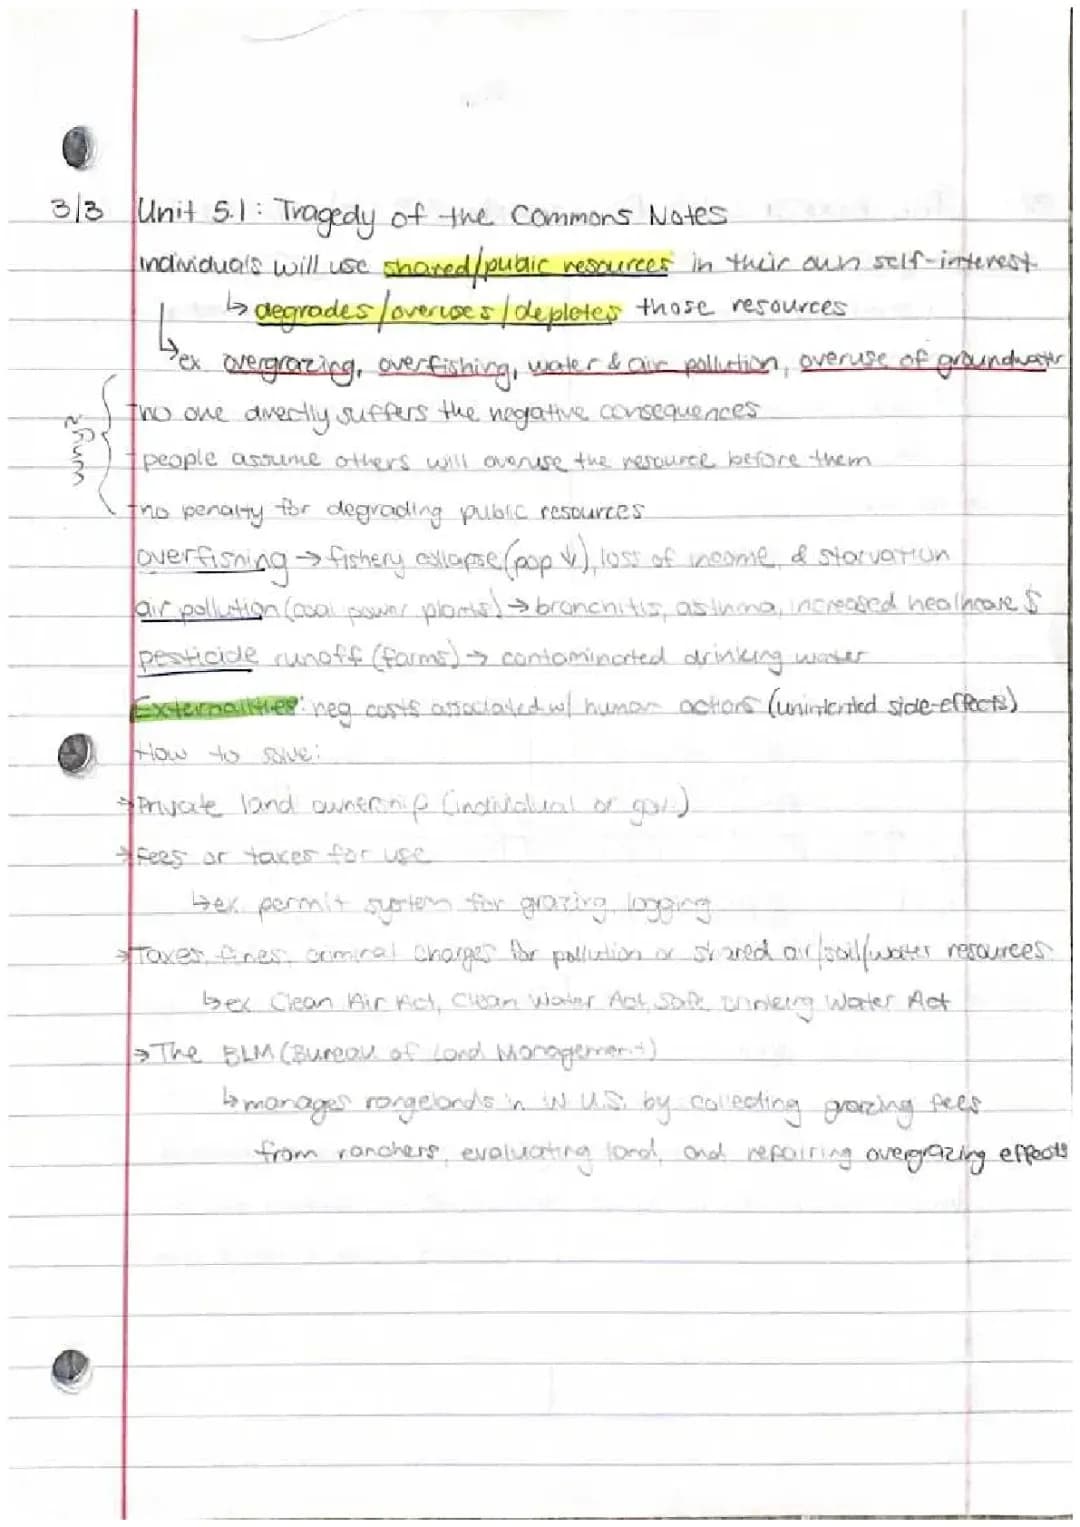 3/3 Unit 5.1: Tragedy of the Commons Notes
individuals will use shared/public resources in their own self-interest
↳ degrades/overuses/depletes those resources
↳ ex overgrazing, overfishing, water & air pollution, overuse of groundwater
no one directly suffers the negative consequences
people assume others will overuse the resource before them
no penalty for degrading public resources
overfishing → fishery collapse (pop ↓), loss of income, & starvation
air pollution (coal power plants) → bronchitis, asthma, increased healthcare $
pesticide runoff (farms) → contaminated drinking water
Externalities: neg costs associated w/ human actions (unintended side-effects)
How to solve:
→ Private land ownership (individual or gov.)
→ Fees or taxes for use
↳ ex. permit system for grazing, logging
→ Taxes, fines, criminal charges for pollution or shared air/soil/water resources
↳ ex Clean Air Act, Clean Water Act, Safe Drinking Water Act
→ The BLM (Bureau of Land Management)
↳ manages rangelands in W U.S. by collecting grazing fees
from ranchers, evaluating land, and repairing overgrazing effects